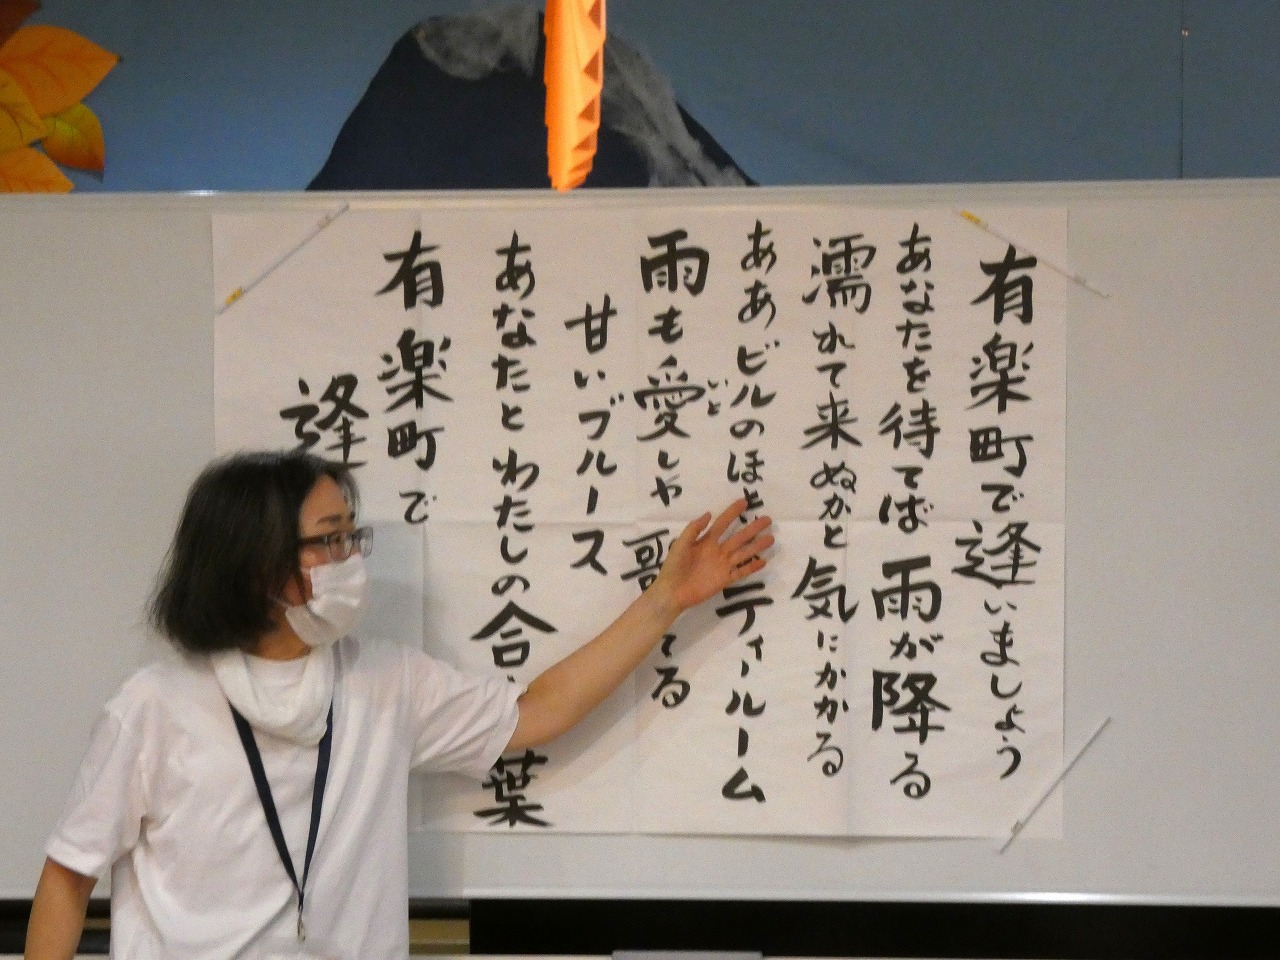 有楽町で逢いましょう
あなたを待てば雨が降る
濡れて来ぬかと気にかかる
ああビルのほと ティールーム
雨も愛しや歌 てる
いと
甘いブルース
あなたとわたしの合 葉
有楽町で
逢